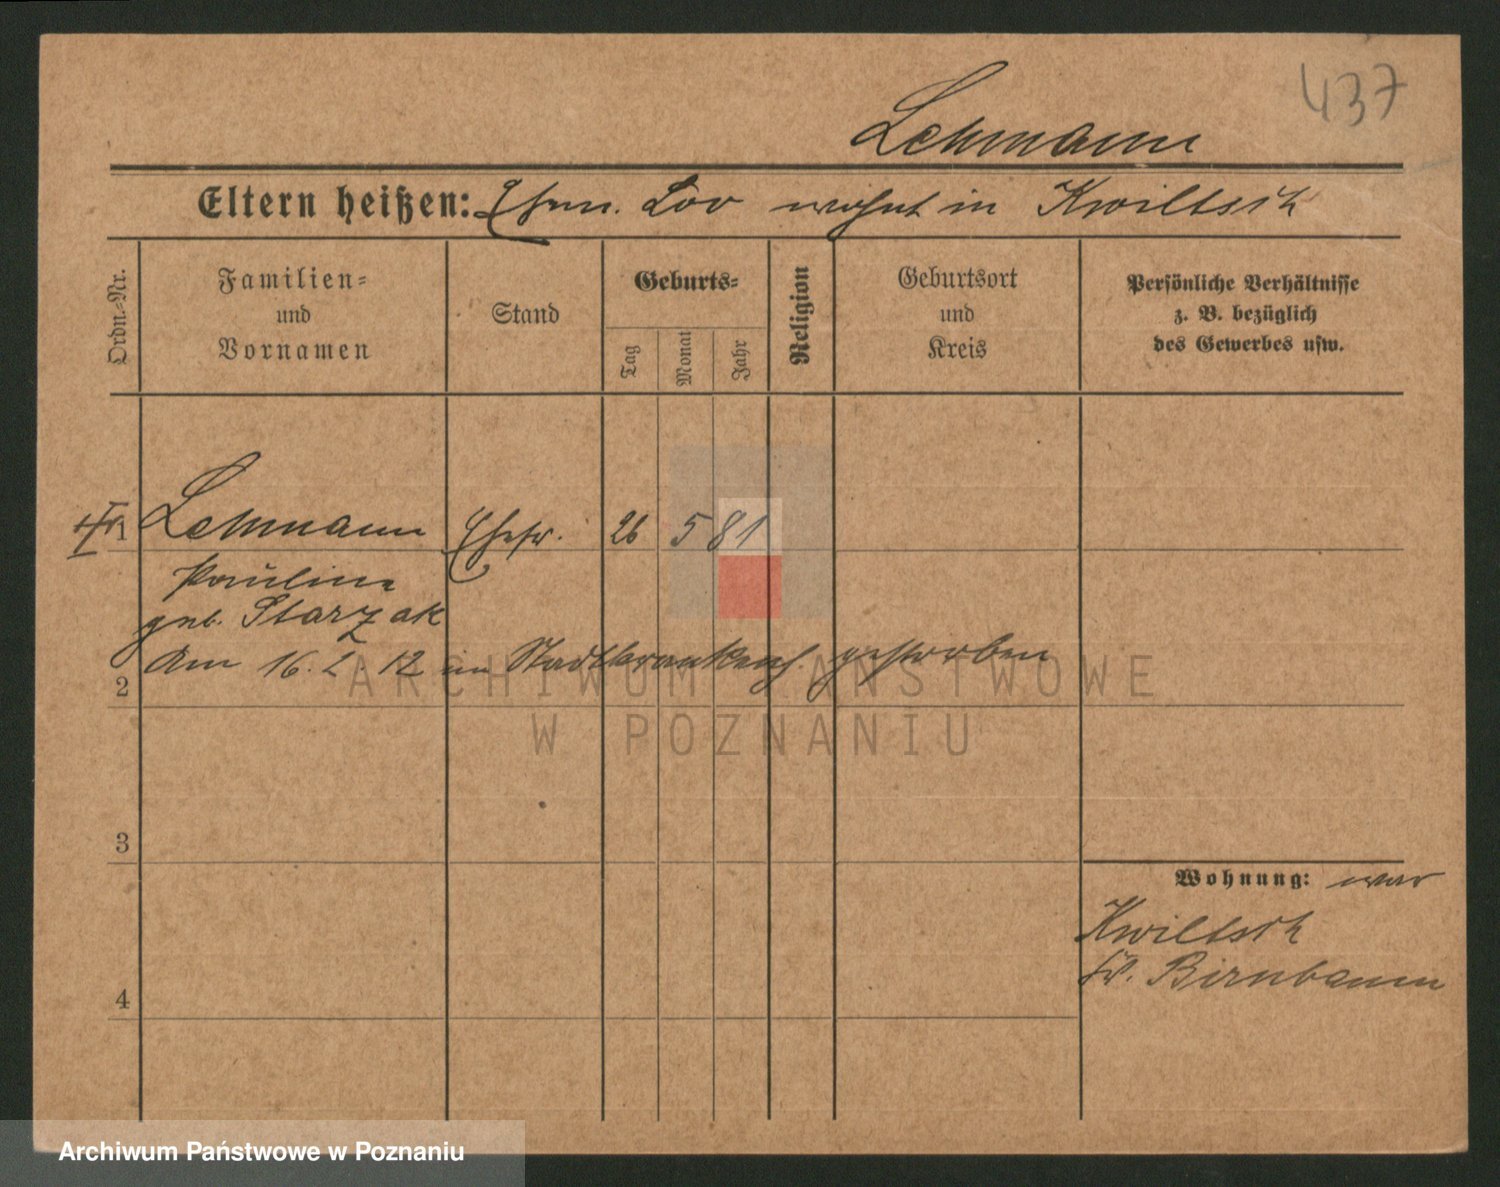 437
Lehmann
Eltern heißen: Ehem. Leo wohnt in Kwiltsch
Ordn.-Nr.
Familien-
und
Vornamen
Stand
Geburts-
Tag
Monat
Jahr
Religion
Geburtsort
und
Kreis
Persönliche Verhältnisse
z. B. bezüglich
des Gewerbes usw.
1 Lehmann Ehefr. 26 5 81
Pauline
geb. Starzak
Am 16. 2. 12 im Stadtkrankenh. gestorben
2
ARCHIWUM PAŃSTWOWE
W POZNANIU
3
Wohnung: war
Kwiltsch
Kr. Birnbaum
4
Archiwum Państwowe w Poznaniu